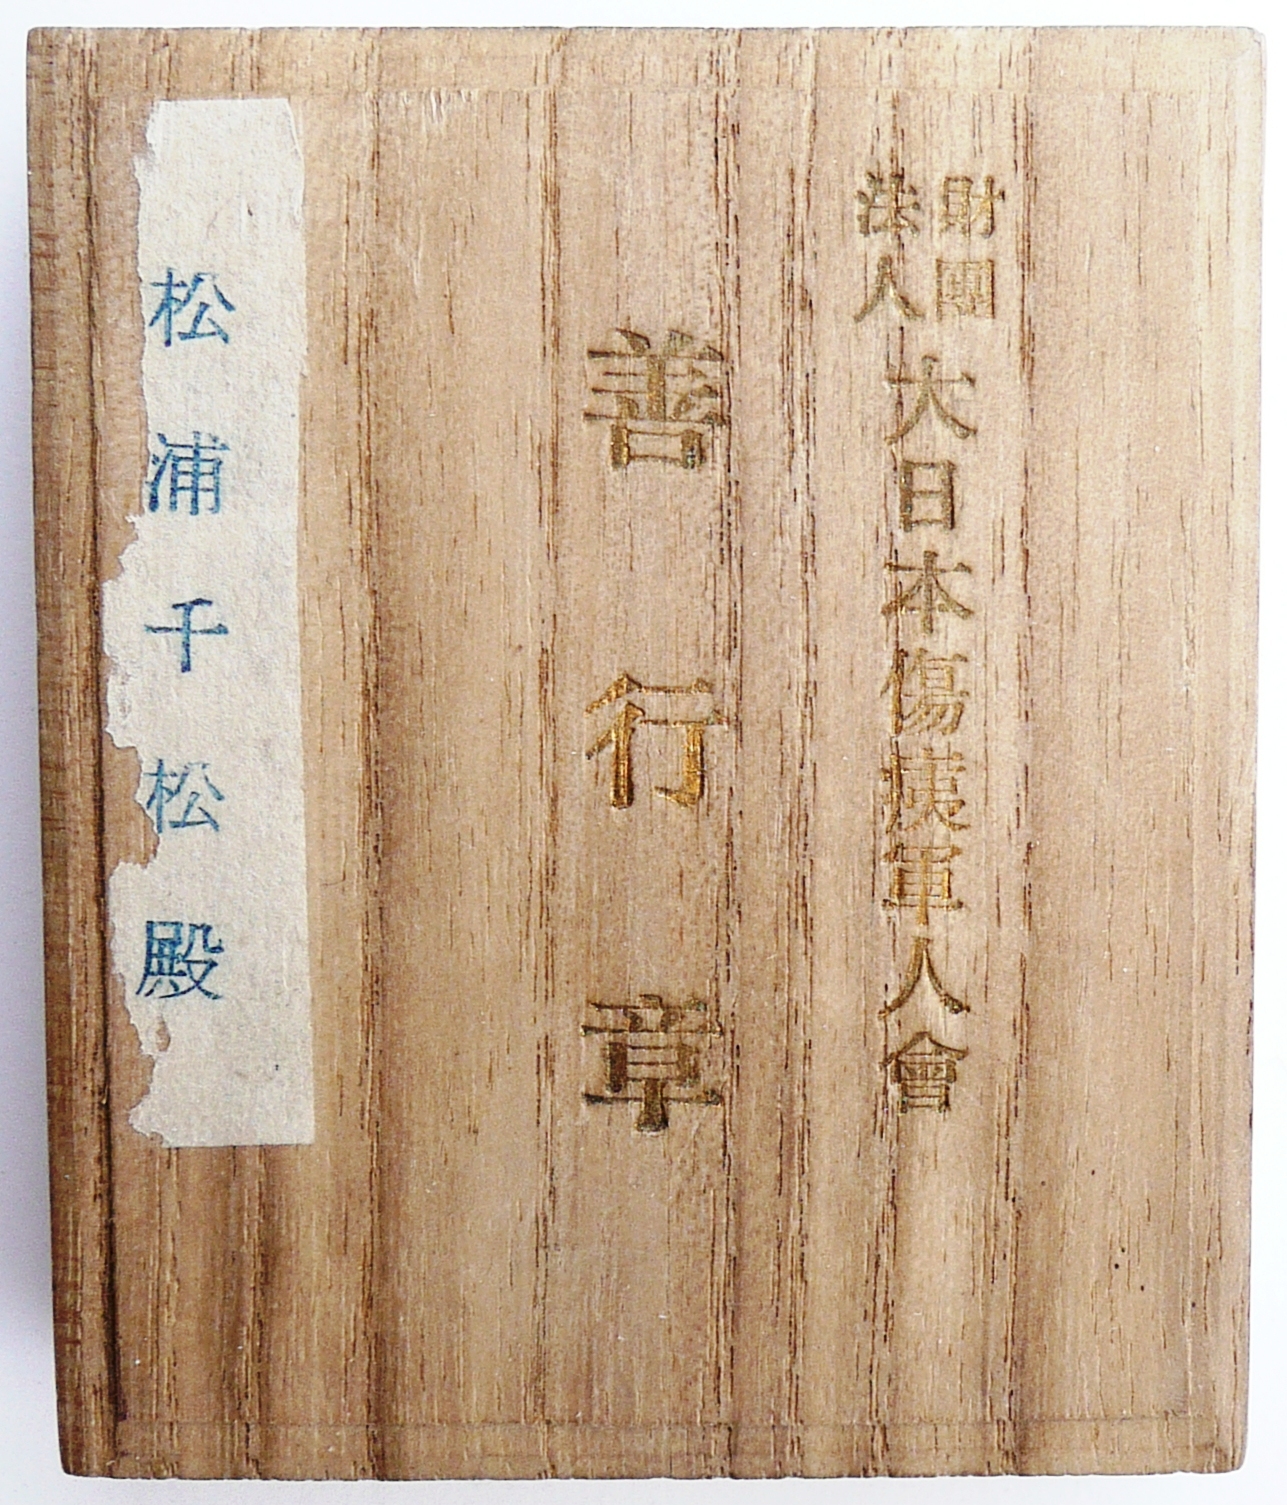 財團法人大日本傷痍軍人會
善行章
松浦千松殿